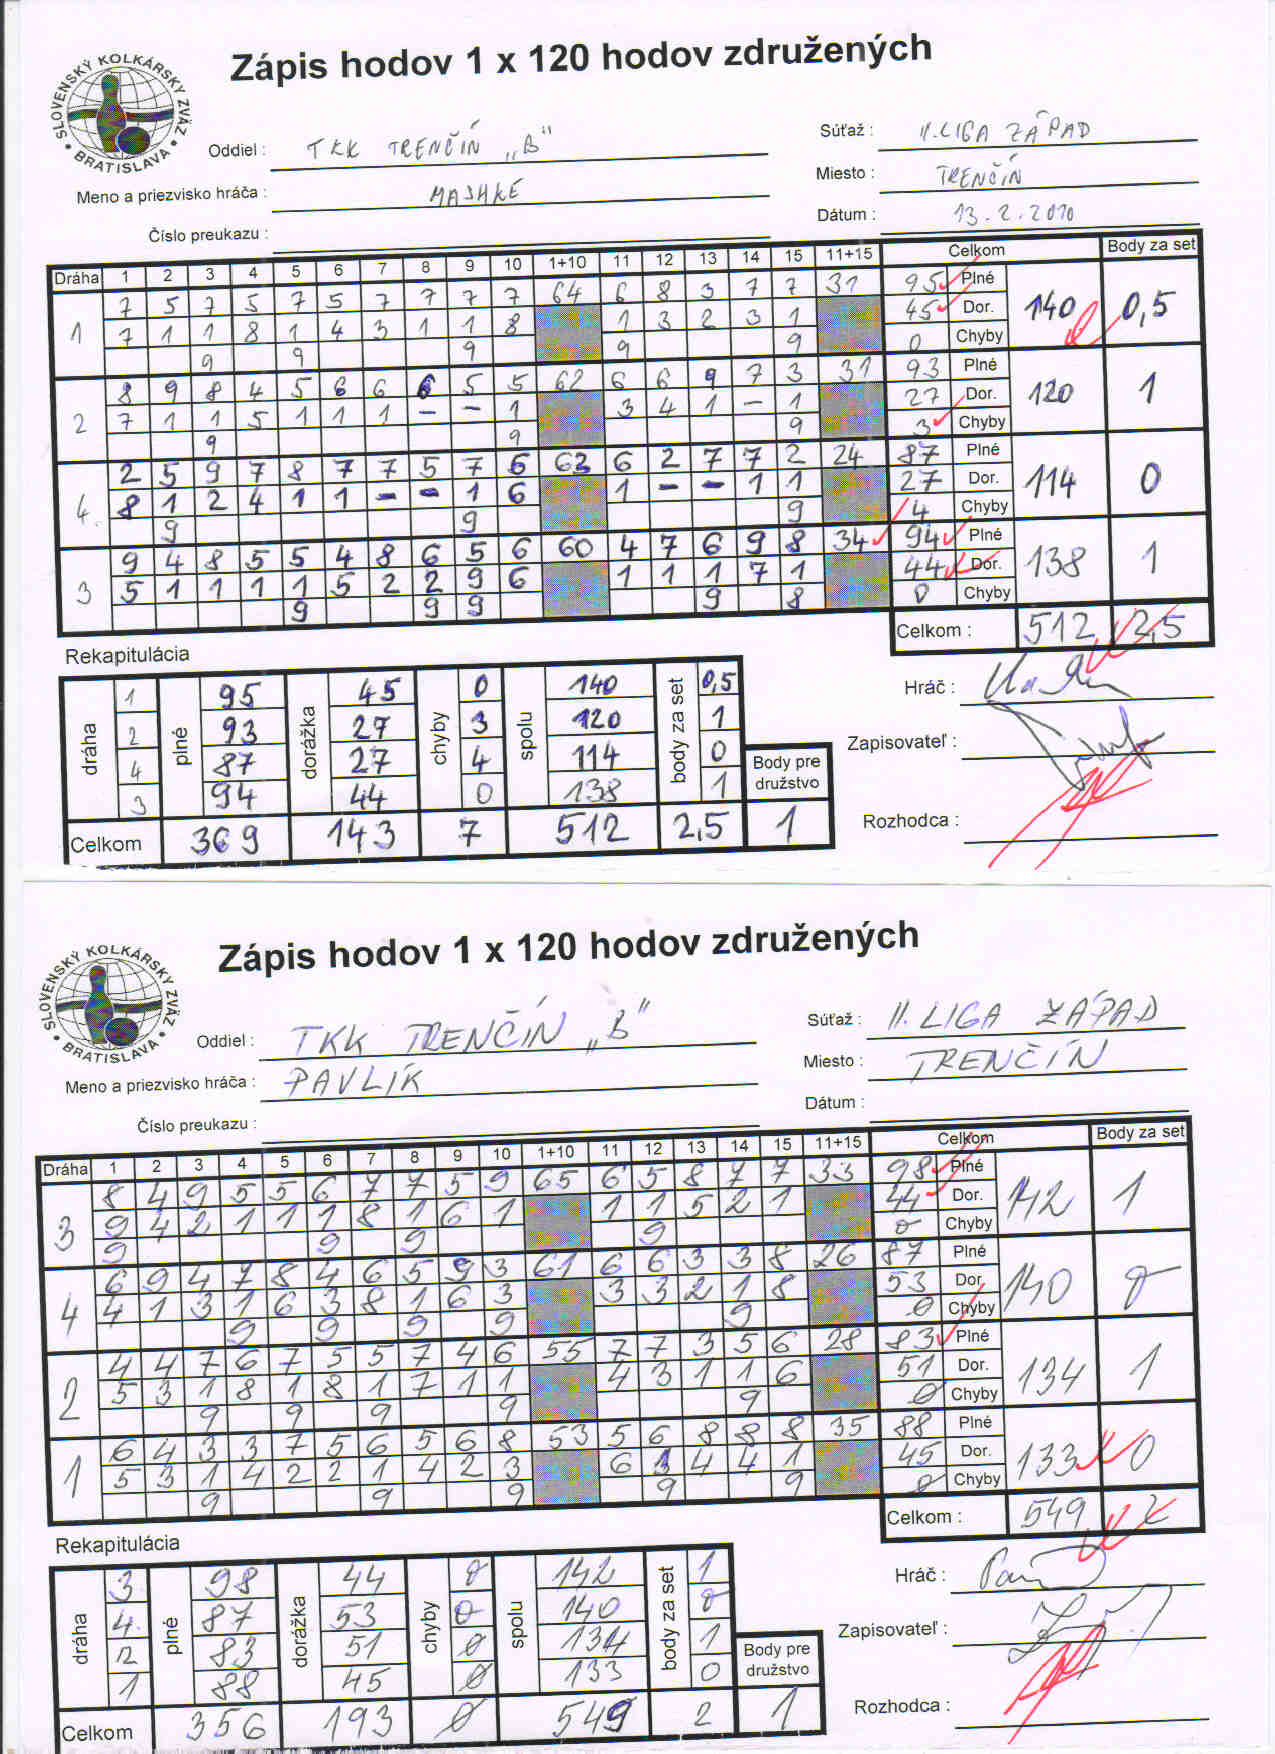 Zápis hodov 1 x 120 hodov združených
SLOVENSKÝ KOLKÁRSKY ZVÄZ • BRATISLAVA •
Oddiel : TKK TRENČÍN „B" Súťaž : II. LIGA ZÁPAD
Meno a priezvisko hráča : MASHKE Miesto : TRENČÍN
Číslo preukazu : Dátum : 13.2.2010
Dráha 1 2 3 4 5 6 7 8 9 10 1+10 11 12 13 14 15 11+15 Celkom Body za set
7 5 7 5 7 5 7 7 7 7 64 6 8 3 7 7 31 95 Plné
1 7 1 1 8 1 4 3 1 1 8 1 3 2 3 1 45 Dor. 140 0,5
9 9 9 9 9 0 Chyby
8 9 8 4 5 6 6 6 5 5 62 6 6 9 7 3 31 93 Plné
2 7 1 1 5 1 1 1 – – 1 3 4 1 – 1 27 Dor. 120 1
9 9 9 3 Chyby
2 5 9 7 8 7 7 5 7 6 63 6 2 7 7 2 24 87 Plné
4. 8 1 2 4 1 1 – – 1 6 1 – – 1 1 27 Dor. 114 0
9 9 9 4 Chyby
9 4 8 5 5 4 8 6 5 6 60 4 7 6 9 8 34 94 Plné
3 5 1 1 1 1 5 2 2 9 6 1 1 1 7 1 44 Dor. 138 1
9 9 9 9 8 0 Chyby
Celkom : 512 2,5
Rekapitulácia
dráha plné dorážka chyby spolu body za set
1 95 45 0 140 0,5
2 93 27 3 120 1
4 87 27 4 114 0
3 94 44 0 138 1
Body pre družstvo
Celkom 369 143 7 512 2,5 1
Hráč :
Zapisovateľ :
Rozhodca :
Zápis hodov 1 x 120 hodov združených
SLOVENSKÝ KOLKÁRSKY ZVÄZ • BRATISLAVA •
Oddiel : TKK TRENČÍN „B" Súťaž : II. LIGA ZÁPAD
Meno a priezvisko hráča : PAVLÍK Miesto : TRENČÍN
Číslo preukazu : Dátum :
Dráha 1 2 3 4 5 6 7 8 9 10 1+10 11 12 13 14 15 11+15 Celkom Body za set
8 4 9 5 5 6 7 7 5 9 65 6 5 8 7 7 33 98 Plné
3 9 4 2 1 1 1 8 1 6 1 1 1 5 2 1 44 Dor. 142 1
9 9 9 9 0 Chyby
6 9 4 7 8 4 6 5 9 3 61 6 6 3 3 8 26 87 Plné
4 4 1 3 1 6 3 8 1 6 3 3 3 2 1 8 53 Dor. 140 0
9 9 9 9 9 0 Chyby
4 4 7 6 7 5 5 7 4 6 55 7 7 3 5 6 28 83 Plné
2 5 3 1 8 1 8 1 7 1 1 4 3 1 1 6 51 Dor. 134 1
9 9 9 9 9 0 Chyby
6 4 3 3 7 5 6 5 6 8 53 5 6 8 8 8 35 88 Plné
1 5 3 1 4 2 2 1 4 2 3 6 1 4 4 1 45 Dor. 133 0
9 9 9 9 9 0 Chyby
Celkom : 549 2
Rekapitulácia
dráha plné dorážka chyby spolu body za set
3 98 44 0 142 1
4. 87 53 0 140 0
2 83 51 0 134 1
1 88 45 0 133 0
Body pre družstvo
Celkom 356 193 0 549 2 1
Hráč :
Zapisovateľ :
Rozhodca :